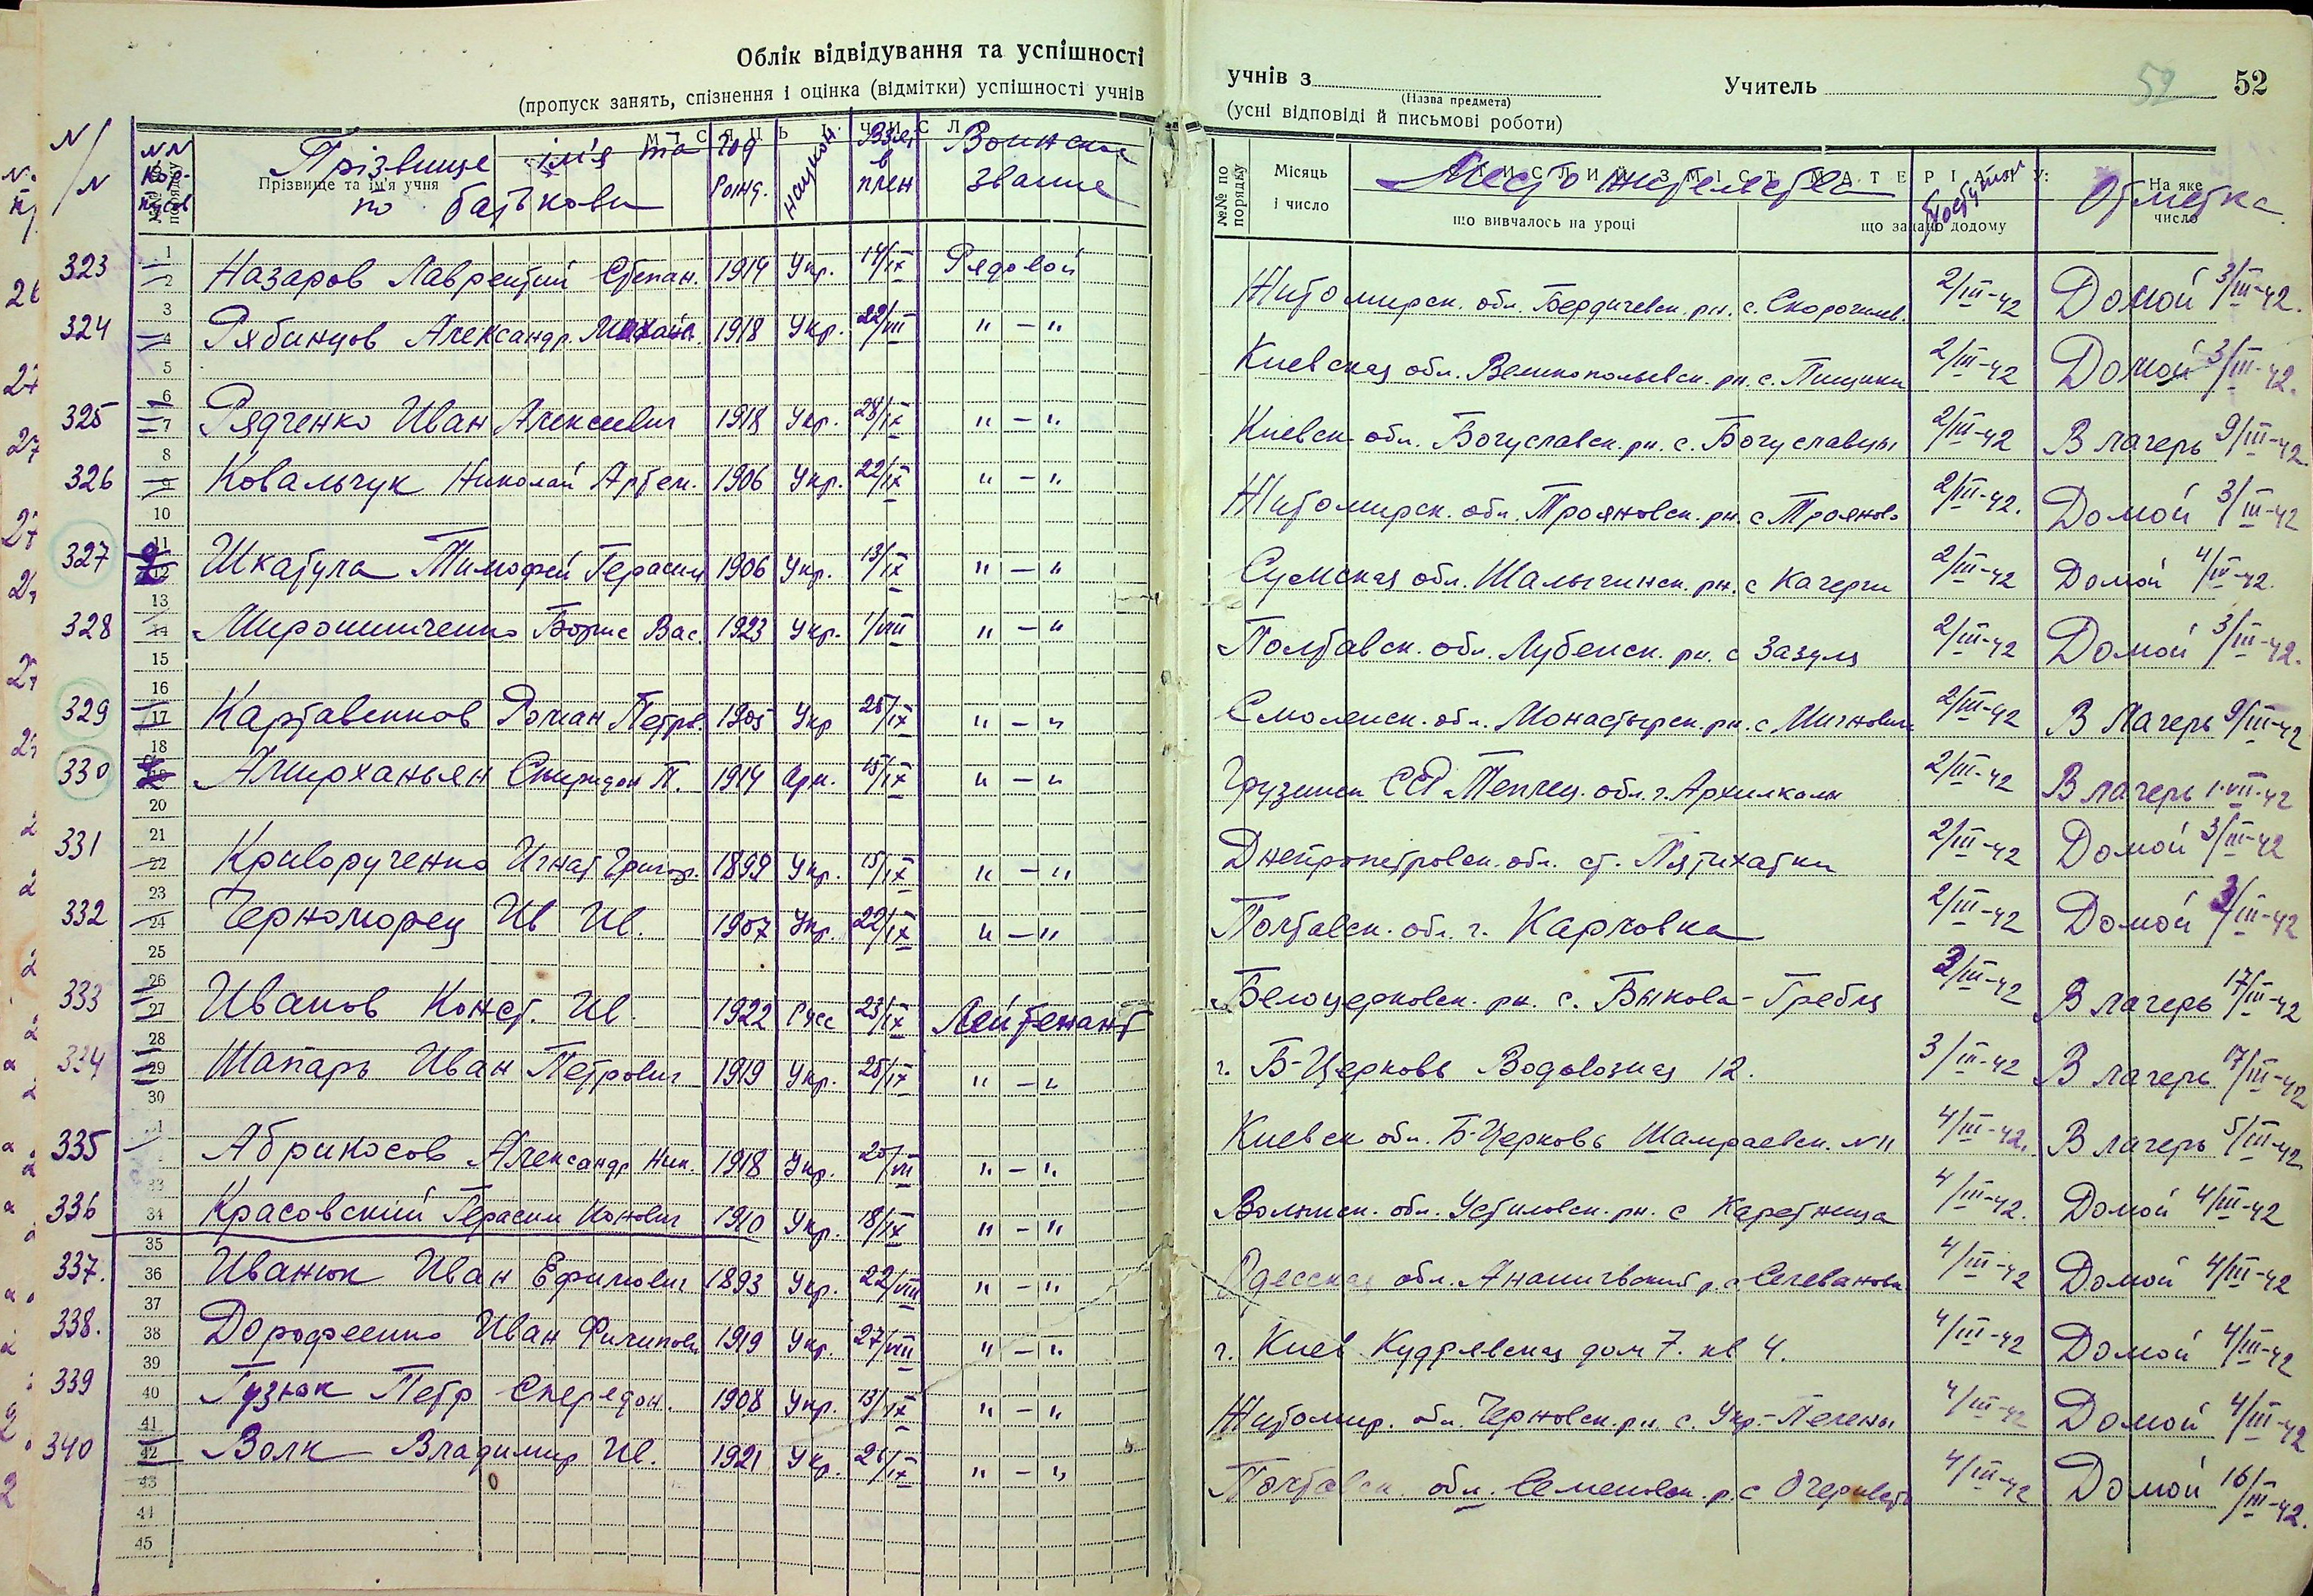 Облік відвідування та успішності
(пропуск занять, спізнення і оцінка (відмітки) успішності учнів
учнів з Учитель 52 52
(Назва предмета)
(усні відповіді й письмові роботи)
Місяць і число
N/N Прізвище ім'я та по батькові Год рожд. национ. Взят в плен Воинское звание Место жительства Поступил Отметка
Прізвище та ім'я учня
№№ по порядку Місяць і число СТИСЛИЙ ЗМІСТ МАТЕРІАЛУ: На яке число
що вивчалось на уроці що задано додому
323 Назаров Лаврентий Степан. 1914 Укр. 14/IX Рядовой Житомирск. обл. Бердичевск. рн. с. 2/III-42 Домой 3/III-42.
324 Рябинцов Александр Михайл. 1918 Укр. 22/VIII "-" Киевская обл. рн. с. Пищики 2/III-42 Домой 3/III-42.
325 Рядченко Иван Алексеевич 1918 Укр. 28/IX "-" Киевск. обл. Богуславск. рн. с. Богуславцы 2/III-42 В лагерь 9/III-42.
326 Ковальчук Николай Артем. 1906 Укр. 22/IX "-" Житомирск. обл. Трояновск. рн. с Трояново 2/III-42. Домой 3/III-42
327 Шкатула Тимофей Герасим 1906 Укр. 13/IX "-" Сумская обл. Шалыгинск. рн. с 2/III-42 Домой 4/IV-42.
328 Мирошниченко Борис Вас. 1923 Укр. 1/VIII "-" Полтавск. обл. Лубенск. рн. с Зазуля 2/III-42 Домой 3/III-42.
329 Картавенков Роман Петров. 1905 Укр 25/IX "-" Смоленск. обл. Монастырск. рн. с 2/III-42 В Лагерь 9/III-42
330 Амирханьян Спиридон П. 1914 Арм. 15/IX "-" Грузинск ССР обл. г. 2/III-42 В лагерь 1-VII-42
331 Криворученко Игнат Григор. 1899 Укр. 15/IX "-" Днепропетровск. обл. ст. Пятихатки 2/III-42 Домой 3/III-42
332 Черноморец Ив Ив. 1907 Укр. 22/IX "-" Полтавск. обл. г. Карловка 2/III-42 Домой 3/III-42
333 Иванов Конст. Ив. 1922 Русс 23/IX Лейтенант Белоцерковск. рн. с. Быкова-Гребля 3/III-42 В лагерь 17/III-42
334 Шапарь Иван Петрович 1919 Укр. 25/IX "-" г. Б-Церковь Водовозная 12. 3/III-42 В лагерь 17/III-42
335 Абрикосов Александр Ник. 1918 Укр. "-" Киевск обл. Б-Церковь Шамраевск. N 11 4/III-42. В лагерь 5/III-42.
336 Красовский Герасим Ионович 1910 Укр. 18/IX "-" Волынск. обл. Устиловск. рн. с Каретница 4/III-42. Домой 4/III-42
337. Иванюк Иван Ефимович 1893 Укр. 22/VIII "-" Одесская обл. р. с. 4/III-42 Домой 4/III-42
338. Дорофеенко Иван Филипови 1919 Укр. 27/VIII "-" г. Киев Кудрявская дом 7. кв 4. 4/III-42 Домой 4/III-42
339 Гузюк Петр Спередон. 1908 Укр. 13/IX "-" Житомир. обл. рн. с. 4/III-42 Домой 4/III-42
340 Волк Владимир Ив. 1921 Укр. 26/IX "-" Полтавск. обл. Семеновск. р. с 4/III-42 Домой 16/III-42.